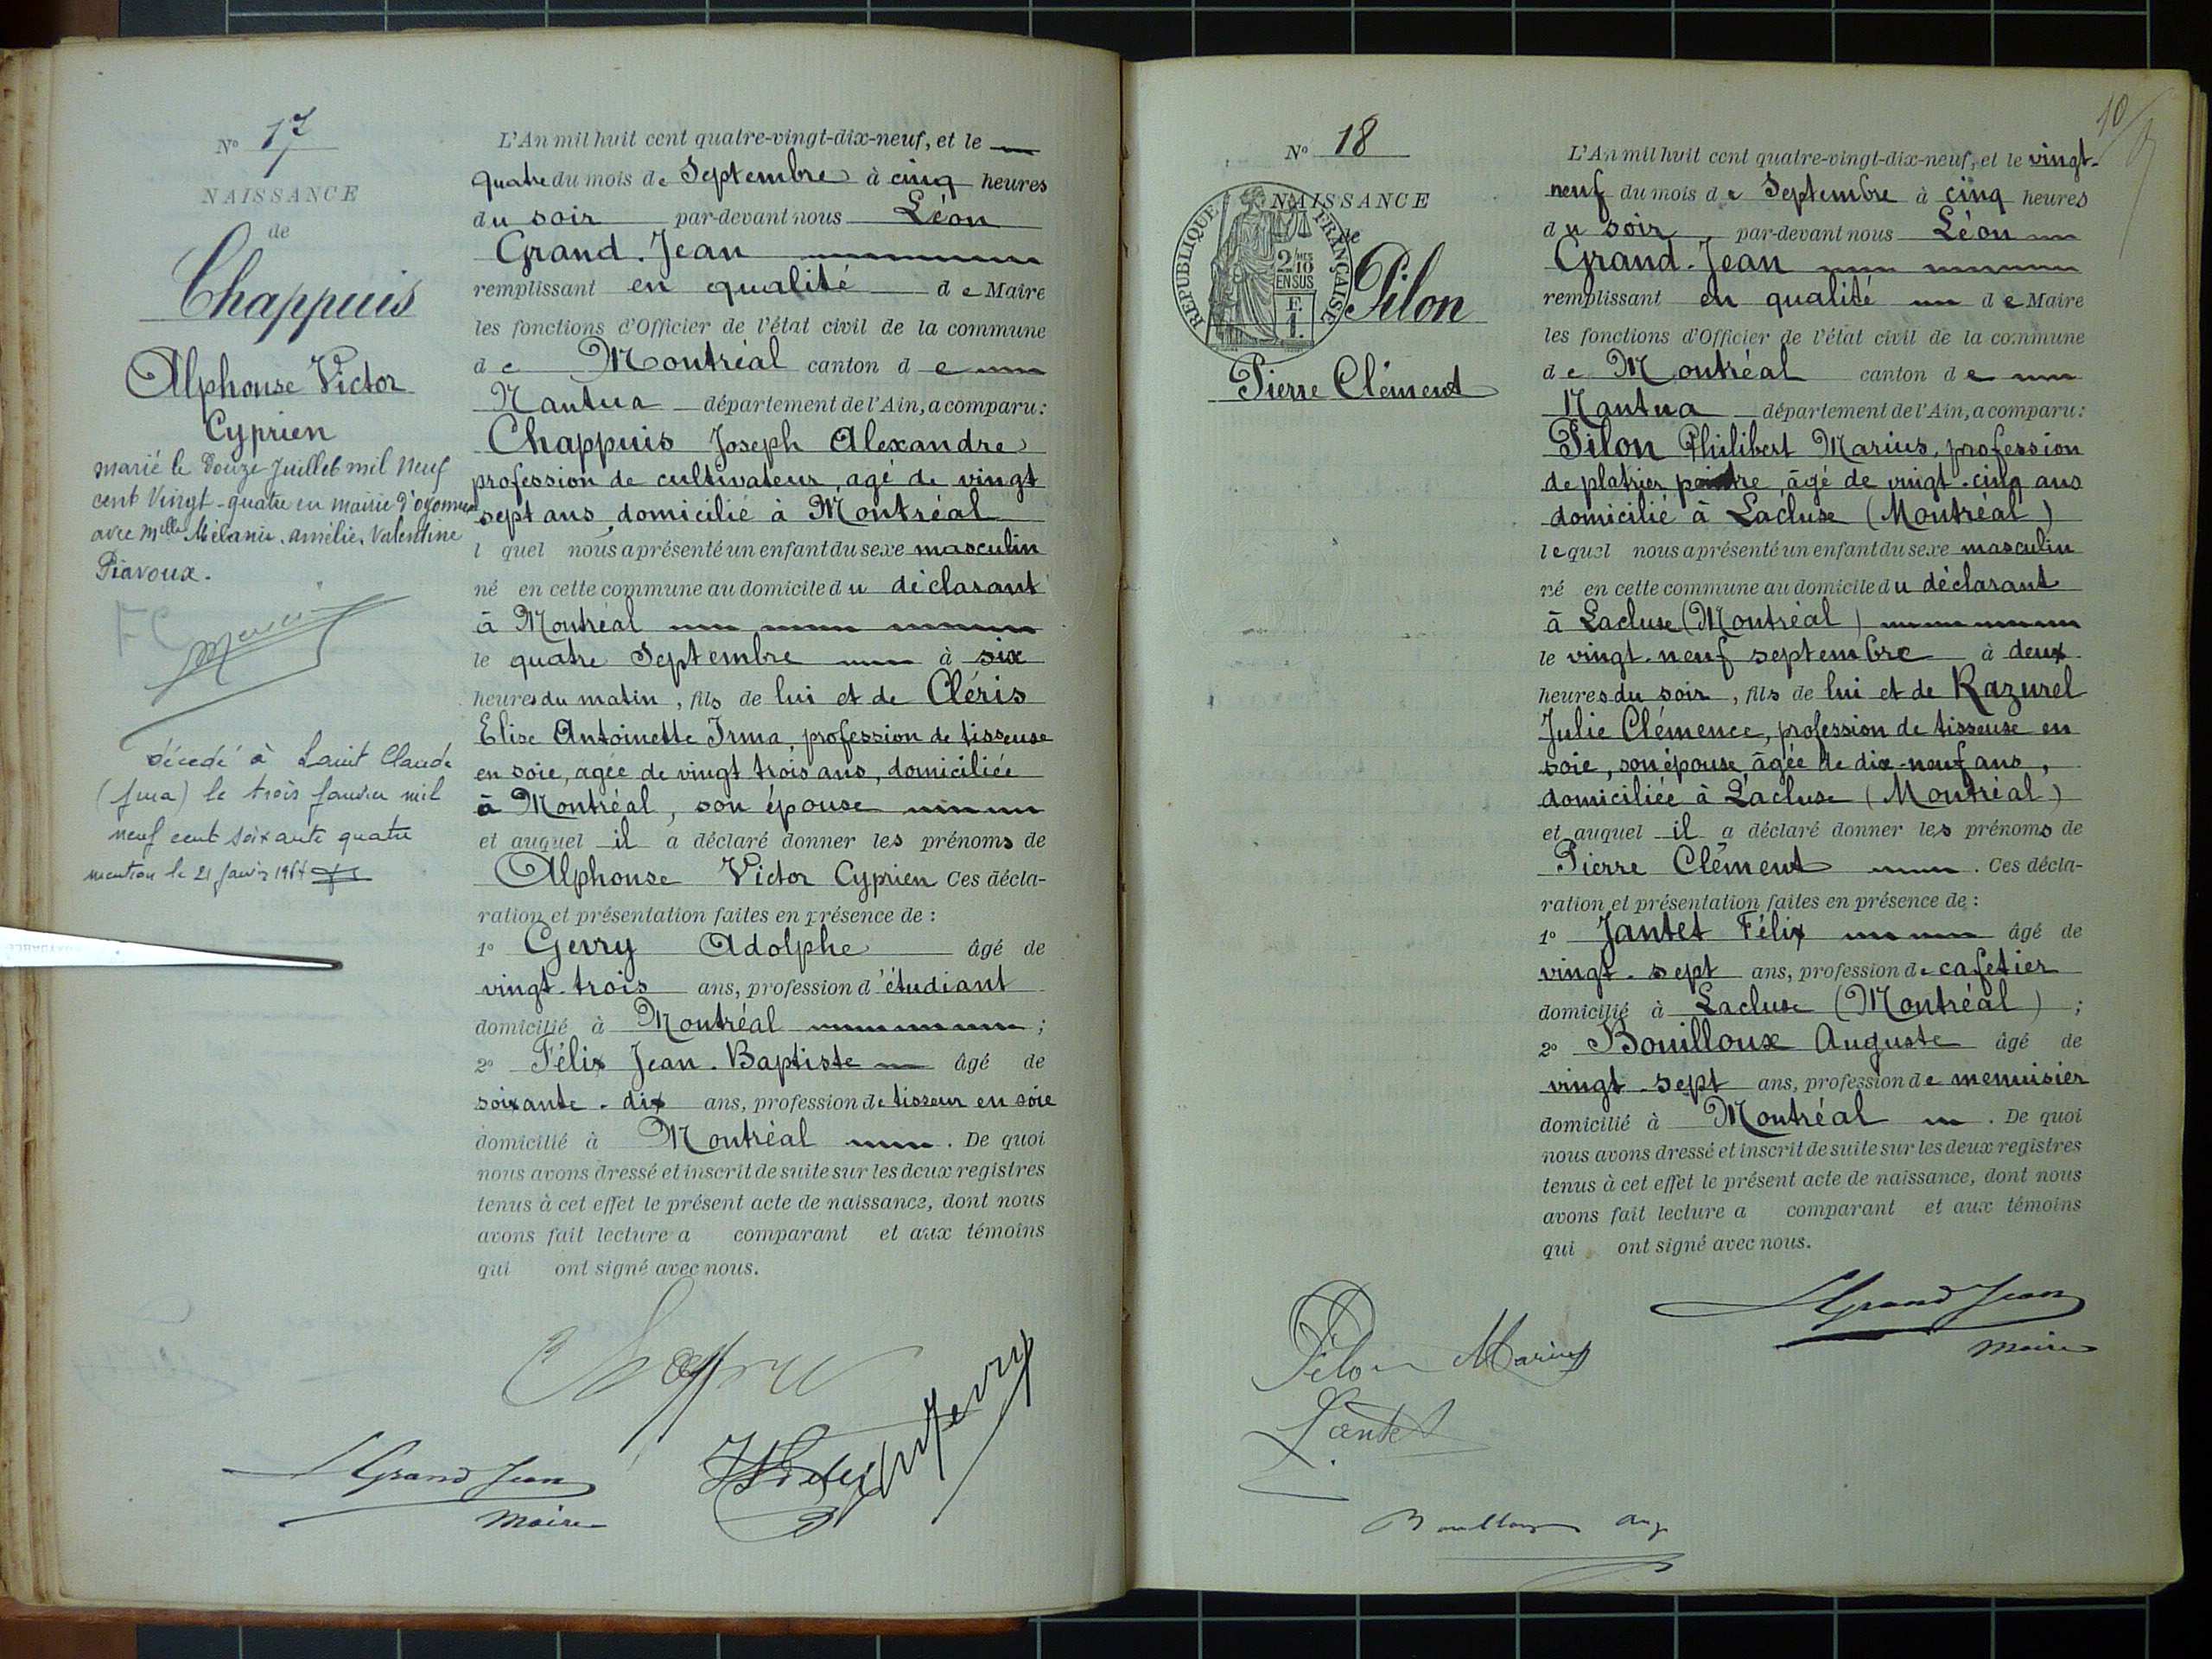 N° 17
NAISSANCE
de
Chappuis
Alphonse Victor
Cyprien
marié le Douze Juillet mil Neuf
cent Vingt-quatre en mairie d'oyonnax
avec Melle Mélanie, amélie, Valentine
Piavoux.
décédé à Saint Claude
(Jura) le trois Janvier mil
neuf cent soixante quatre
mention le 21 Janvier 1964
L'An mil huit cent quatre-vingt-dix-neuf, et le
quatre du mois de Septembre à cinq heures
du soir par-devant nous Léon
Grand-Jean
remplissant en qualité de Maire
les fonctions d'Officier de l'état civil de la commune
de Montréal canton de
Nantua département de l'Ain, a comparu:
Chappuis Joseph Alexandre
profession de cultivateur, agé de vingt
sept ans, domicilié à Montréal
l quel nous a présenté un enfant du sexe masculin
né en cette commune au domicile du déclarant
à Montréal
le quatre Septembre à six
heures du matin, fils de lui et de Cléris
Elise Antoinette Irma, profession de tisseuse
en soie, agée de vingt trois ans, domiciliée
à Montréal, son épouse
et auquel il a déclaré donner les prénoms de
Alphonse Victor Cyprien Ces décla-
ration et présentation faites en présence de :
1° Gevry Adolphe âgé de
vingt-trois ans, profession d'étudiant
domicilié à Montréal ;
2° Félix Jean-Baptiste âgé de
soixante-dix ans, profession de tisseur en soie
domicilié à Montréal . De quoi
nous avons dressé et inscrit de suite sur les deux registres
tenus à cet effet le présent acte de naissance, dont nous
avons fait lecture a comparant et aux témoins
qui ont signé avec nous.
LGrand Jean
Maire
10
N° 18
NAISSANCE
de
REPUBLIQUE FRANÇAISE
2/10 DES
EN SUS
F.
1.
Pilon
Pierre Clément
L'An mil huit cent quatre-vingt-dix-neuf, et le vingt-
neuf du mois de Septembre à cinq heures
du soir par-devant nous Léon
Grand-Jean
remplissant en qualité de Maire
les fonctions d'Officier de l'état civil de la commune
de Montréal canton de
Nantua département de l'Ain, a comparu:
Pilon Philibert Marius, profession
de platrier peintre, âgé de vingt-cinq ans
domicilié à Lacluse (Montréal)
lequel nous a présenté un enfant du sexe masculin
né en cette commune au domicile du déclarant
à Lacluse (Montréal)
le vingt-neuf septembre à deux
heures du soir, fils de lui et de Razurel
Julie Clémence, profession de tisseuse en
soie, son épouse, âgée de dix-neuf ans,
domiciliée à Lacluse (Montréal)
et auquel il a déclaré donner les prénoms de
Pierre Clément . Ces décla-
ration et présentation faites en présence de :
1° Jantet Félix âgé de
vingt-sept ans, profession de cafetier
domicilié à Lacluse (Montréal) ;
2° Bouilloux Auguste âgé de
vingt-sept ans, profession de menuisier
domicilié à Montréal . De quoi
nous avons dressé et inscrit de suite sur les deux registres
tenus à cet effet le présent acte de naissance, dont nous
avons fait lecture a comparant et aux témoins
qui ont signé avec nous.
LGrand Jean
Maire
Pilon Marius
Jantet
Bouilloux Aug